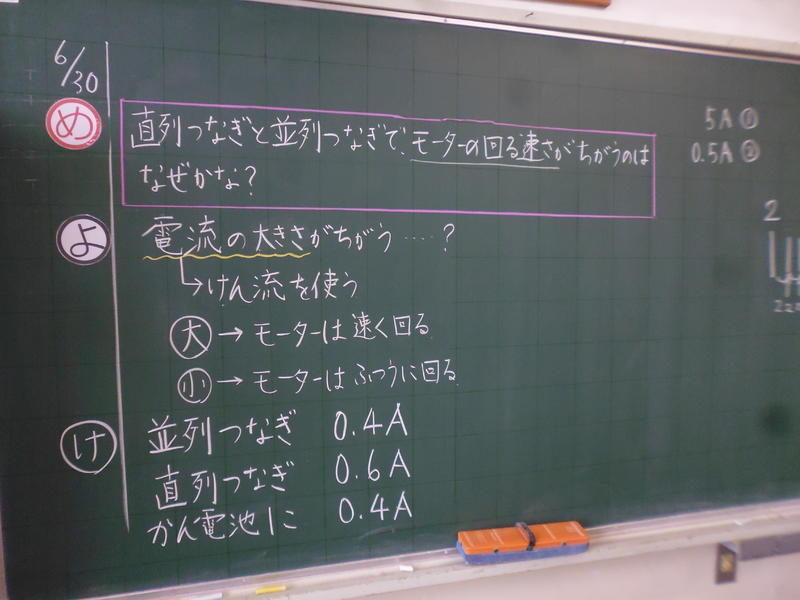 6/30
め 直列つなぎと並列つなぎで、モーターの回る速さがちがうのは
なぜかな?
よ 電流の大きさがちがう……?
→けん流を使う
大→モーターは速く回る
小→モーターはふつうに回る
け 並列つなぎ 0.4A
直列つなぎ 0.6A
かん電池1こ 0.4A
5A ①
0.5A ②
2